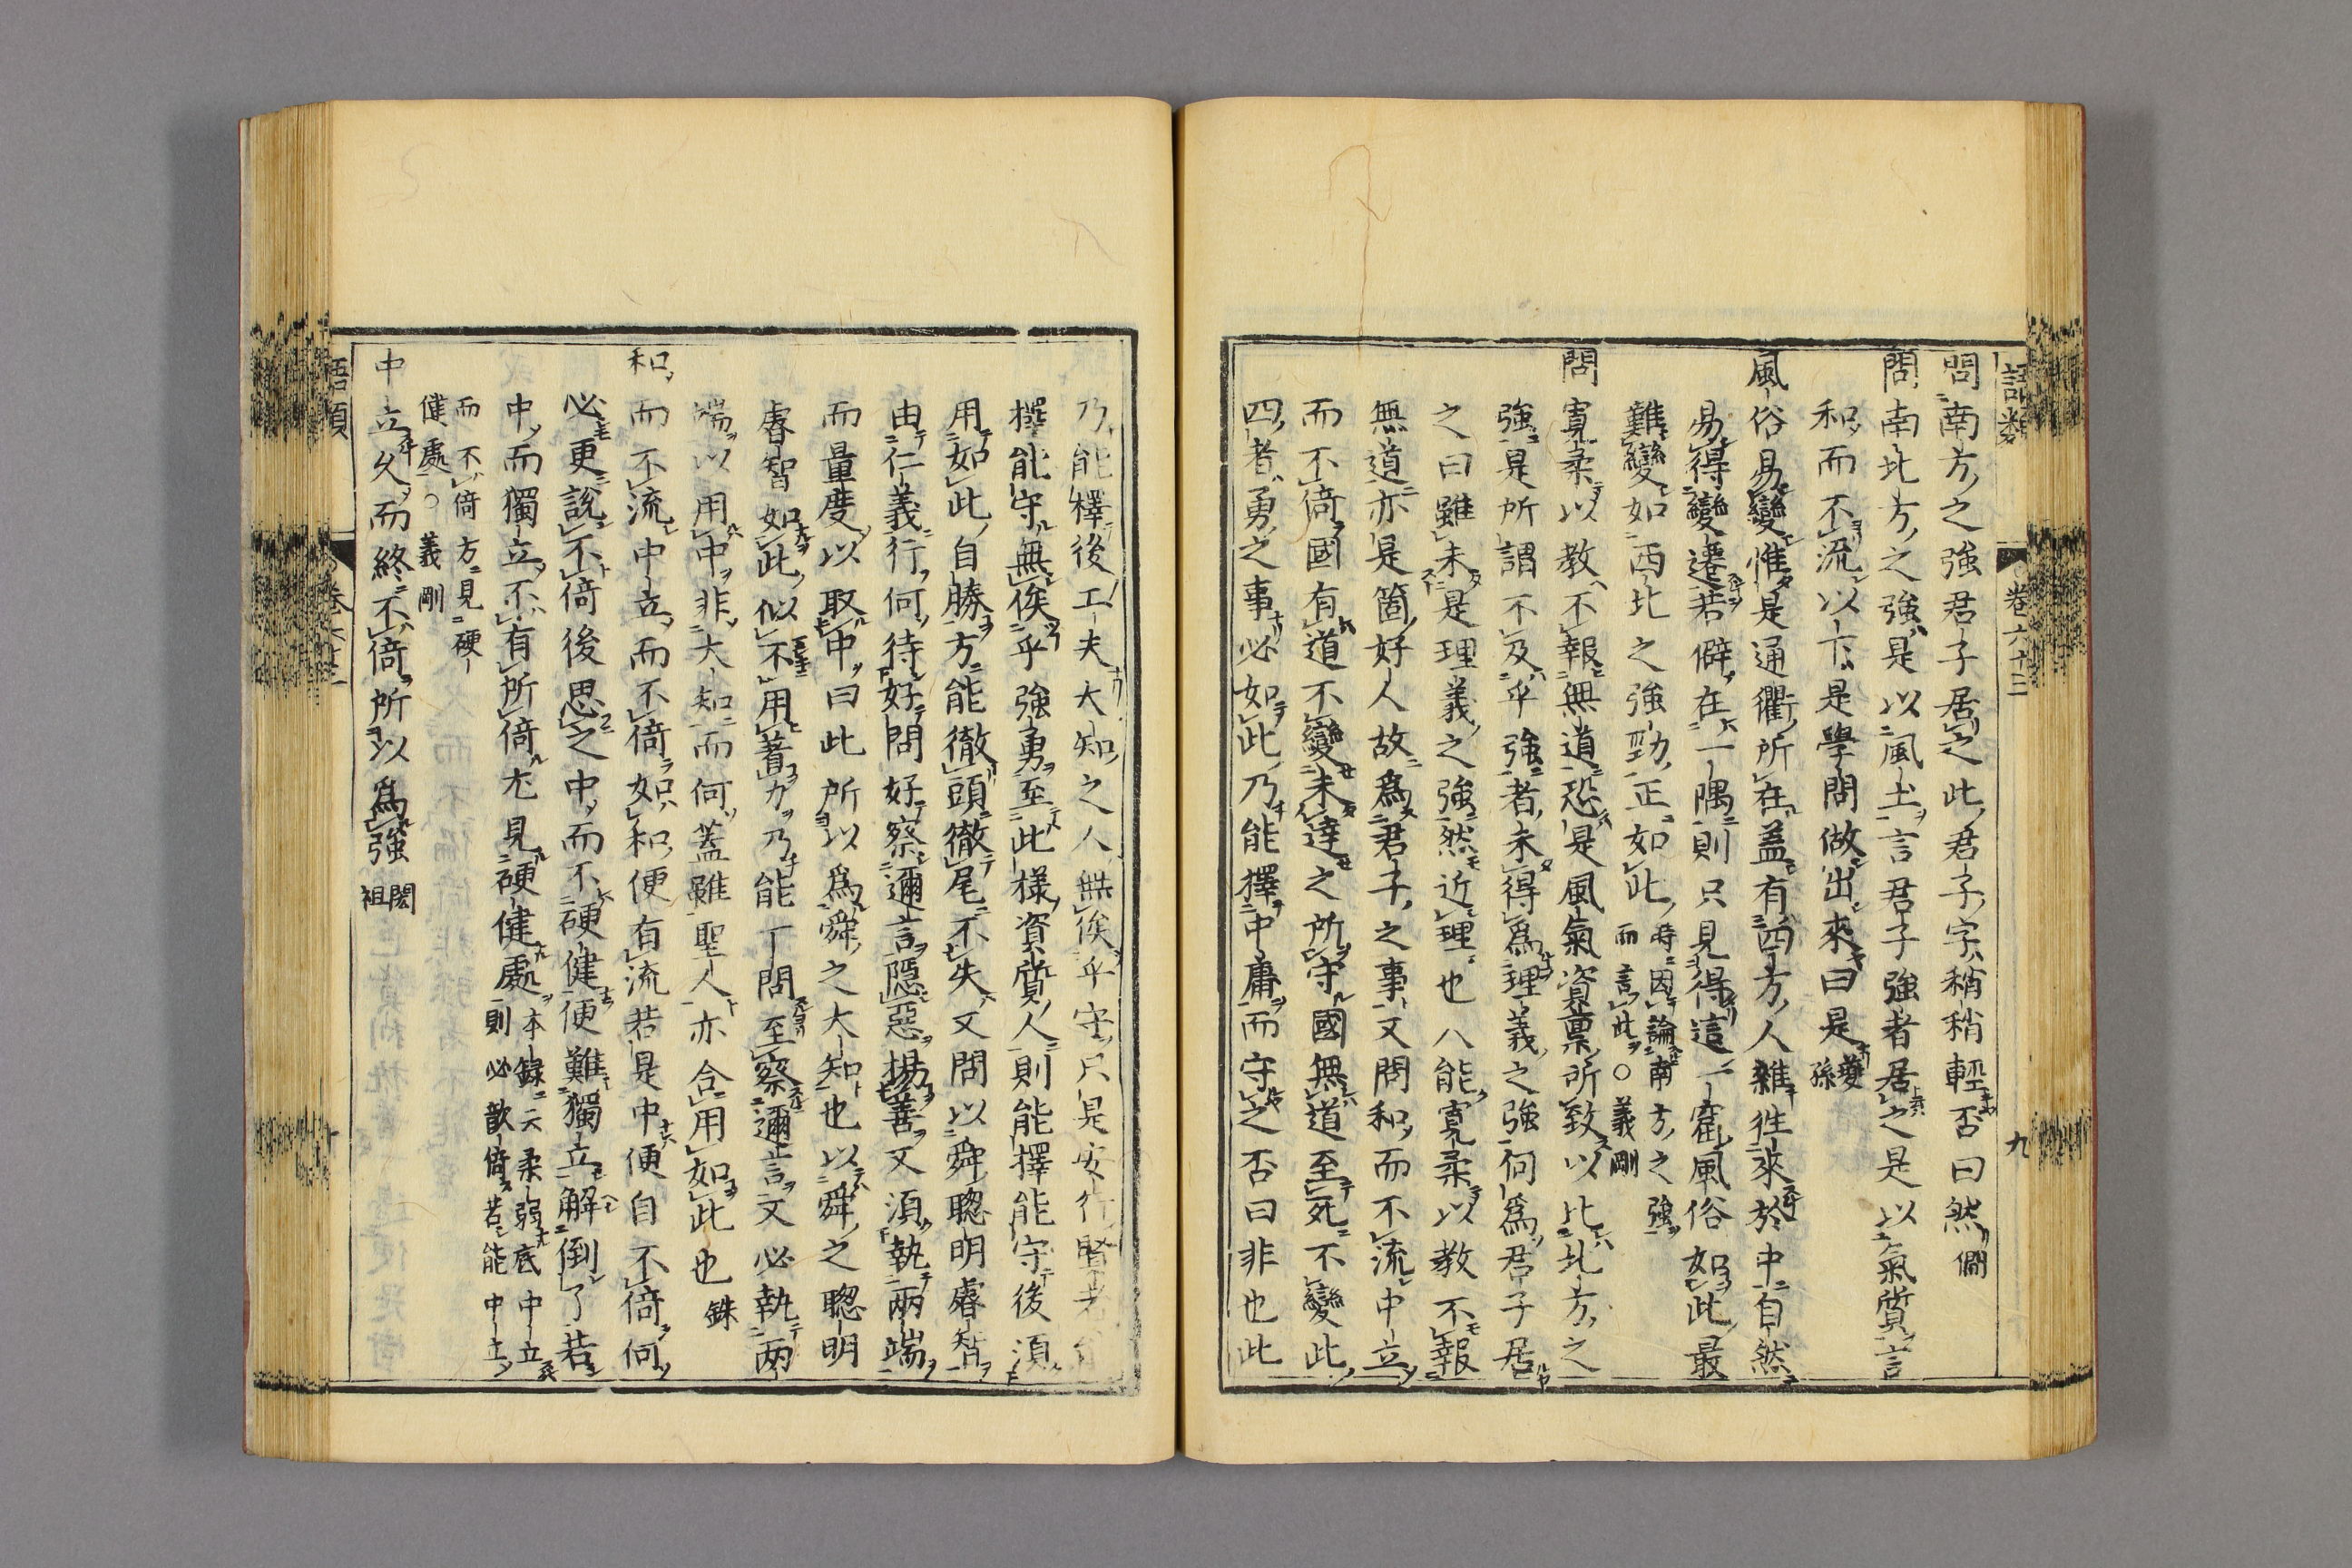 語類 卷六十三 九
問南方之強君子居之此君子字稍稍輕否曰然僴
問南北方之強是以風土言君子強者居之是以氣質言
和而不流以下是學問做出來曰是夔孫
風俗易變惟是通衢所在蓋有四方人雜徃來於中自然
易得變遷若僻在一隅則只見得這一窟風俗如此最
難變如西北之強勁正如此時因論南方之強而言此○義剛
問寬柔以教不報無道恐是風氣資稟所致以比北方之
強是所謂不及乎強者未得爲理義之強何爲君子居
之曰雖未是理義之強然近理也人能寬柔以教不報
無道亦是箇好人故爲君子之事又問和而不流中立
而不倚國有道不變未達之所守國無道至死不變此
四者勇之事必如此乃能擇中庸而守之否曰非也此
乃能擇後工夫大知之人無俟乎守只是安行賢者能
擇能守無俟乎強勇至此樣資質人則能擇能守後須
用如此自勝方能徹頭徹尾不失又問以舜聰明睿智
由仁義行何待好問好察邇言隱惡揚善又須執兩端
而量度以取中曰此所以爲舜之大知也以舜之聰明
睿智如此似不用著力乃能下問至察邇言又必執兩
端以用中非大知而何蓋雖聖人亦合用如此也銖
和而不流中立而不倚如和便有流若是中便自不倚何
必更說不倚後思之中而不硬健便難獨立解倒了若
中而獨立不有所倚尤見硬健處本錄云柔弱底中立則必欹倚若能中立
而不倚方見硬
健處○義剛
中立久而終不倚所以爲強閎祖
語類 卷六十三